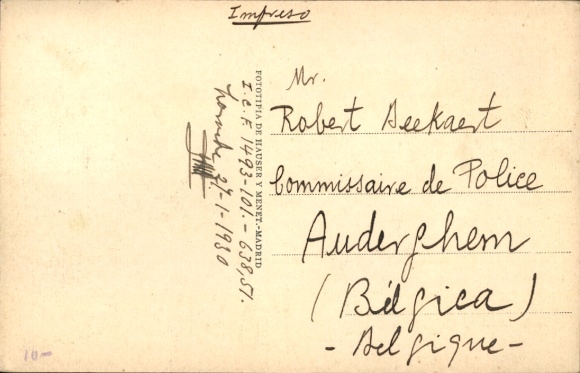 Impreso
Mr.
Robert Beekaert
Commissaire de Police
Auderghem
(Bélgica)
- Belgique -
FOTOTIPIA DE HAUSER Y MENET.-MADRID
I.C.F. 1493-101.-638,51.
27-1-1930
10-